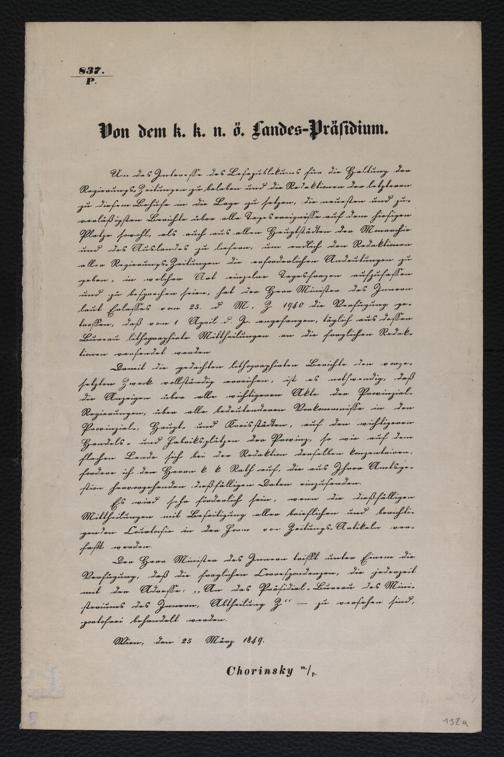 837.
P.
Von dem k. k. n. ö. Landes-Präsidium.
Um das Interesse des Lesepublikums für die Haltung der
Regierungs-Zeitungen zu beleben und die Redaktionen der letzteren
zu diesem Behufe in die Lage zu setzen, die neuesten und zu-
verläßigsten Berichte über alle Tagesereignisse auf dem hiesigen
Platze sowohl, als auch aus allen Hauptstädten der Monarchie
und des Auslandes zu liefern, um endlich den Redaktionen
aller Regierungs-Zeitungen die erforderlichen Andeutungen zu
geben, in welcher Art einzelne Tagesfragen aufzufassen
und zu besprechen seien, hat der Herr Minister des Innern
laut Erlasses vom 23. d. M. Z 1940 die Verfügung ge-
troffen, daß vom 1 April d. J. angefangen, täglich aus dessen
Bureau lithographirte Mittheilungen an die fraglichen Redak-
tionen versendet werden.
Damit die gedachten lithographirten Berichte den vorge-
setzten Zweck vollständig erreichen, ist es nothwendig, daß
die Anzeigen über alle wichtigeren Akte der Provinzial-
Regierungen, über alle bedeutenderen Vorkommnisse in den
Provinzial-, Haupt- und Kreisstädten, auf den wichtigeren
Handels- und Fabriksplätzen der Provinz, so wie auf dem
flachen Lande sich bei der Redaktion derselben konzentriren,
fordere ich den Herrn k k Rath auf, die aus Ihrer Amtsge-
stion hervorgehenden dießfälligen Daten einzusenden.
Es wird sehr förderlich sein, wenn die dießfälligen
Mittheilungen mit Beseitigung aller brieflichen und
Courtoisie in der Form von Zeitungs-Artikeln ver-
faßt werden.
Der Herr Minister des Innern trifft unter Einem die
Verfügung, daß die fraglichen Correspondenzen, die jederzeit
mit der Adresse: „An das Präsidial-Bureau des Mini-
steriums des Innern, Abtheilung Z“ — zu versehen sind,
portofrei behandelt werden.
Wien, den 25 März 1849.
Chorinsky m/p.
132a